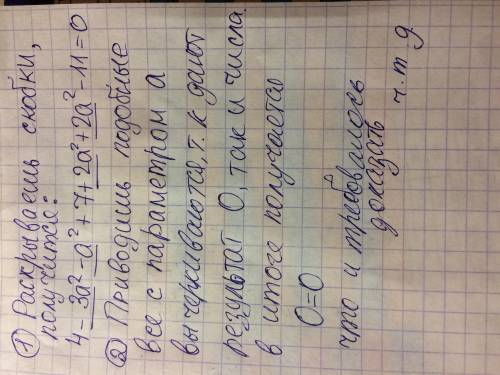 ① Раскрываешь скобки,
получишь:
4-3a²-a²+7+2a²+2a²-11=0
② Приводишь подобные
все с параметром а
вычеркиваются, т.к дают
результат 0, так и числа
в итоге получается
0=0
что и требовалось
доказать
ч.т.д